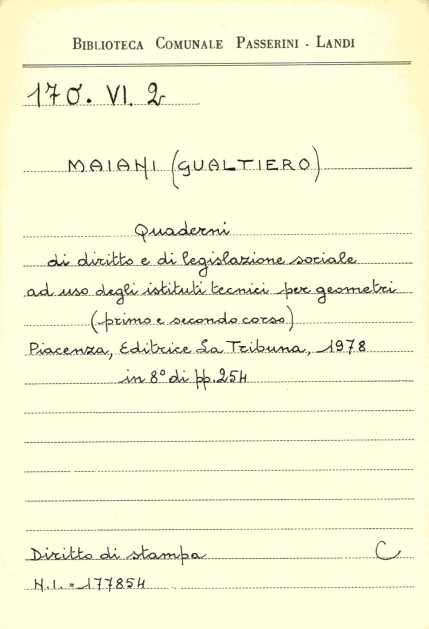 BIBLIOTECA COMUNALE PASSERINI - LANDI
170. VI. 2
MAIANI (GUALTIERO)
Quaderni
di diritto e di legislazione sociale
ad uso degli istituti tecnici per geometri
(primo e secondo corso)
Piacenza, Editrice La Tribuna, 1978
in 8° di pp. 254
Diritto di stampa C
N.I. = 177854